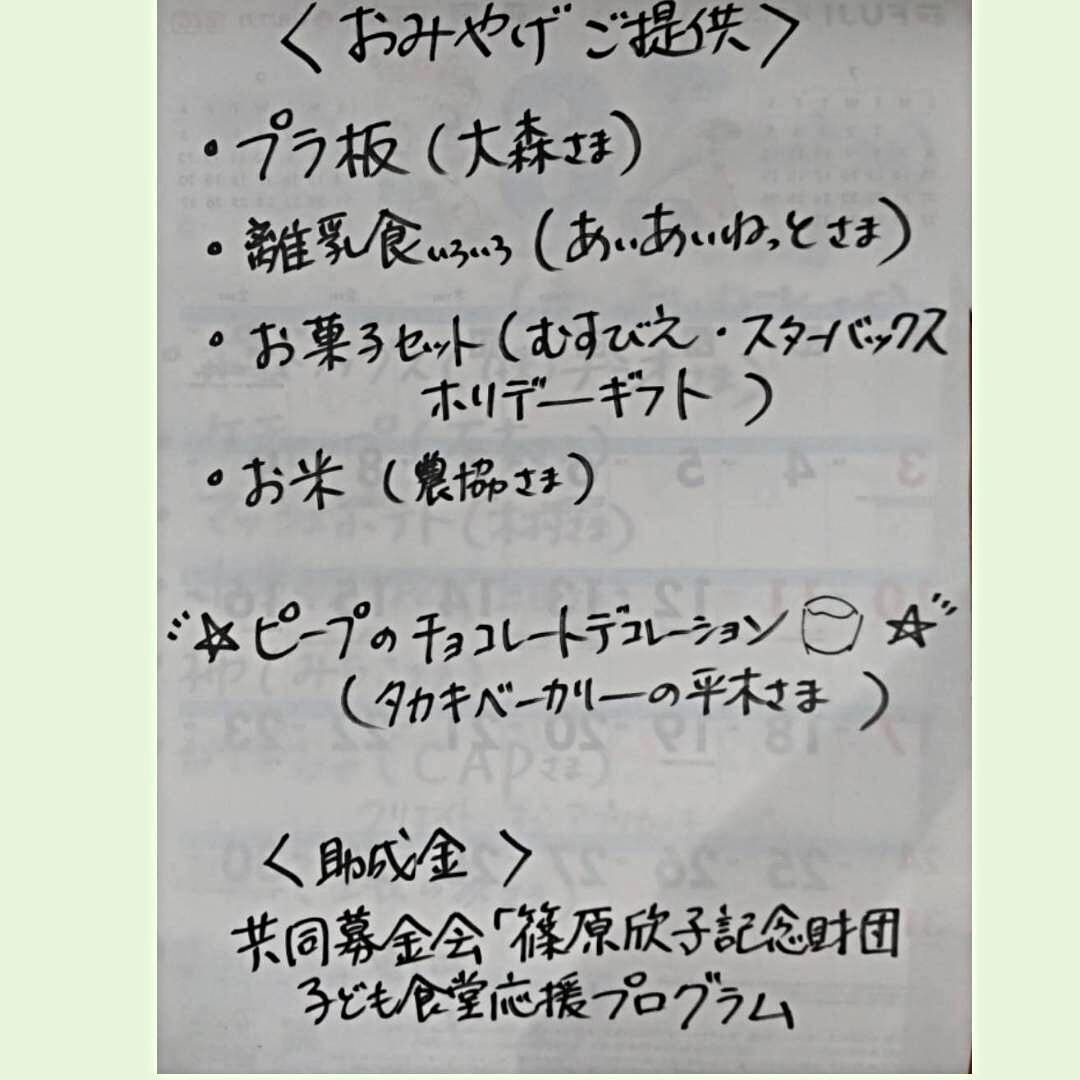 〈おみやげご提供〉
・プラ板(大森さま)
・離乳食いろいろ(あいあいねっとさま)
・お菓子セット(むすびえ・スターバックス
ホリデーギフト)
・お米(農協さま)
☆ピープのチョコレートデコレーション☆
(タカキベーカリーの平木さま)
〈助成金〉
共同募金会「篠原欣子記念財団
子ども食堂応援プログラム